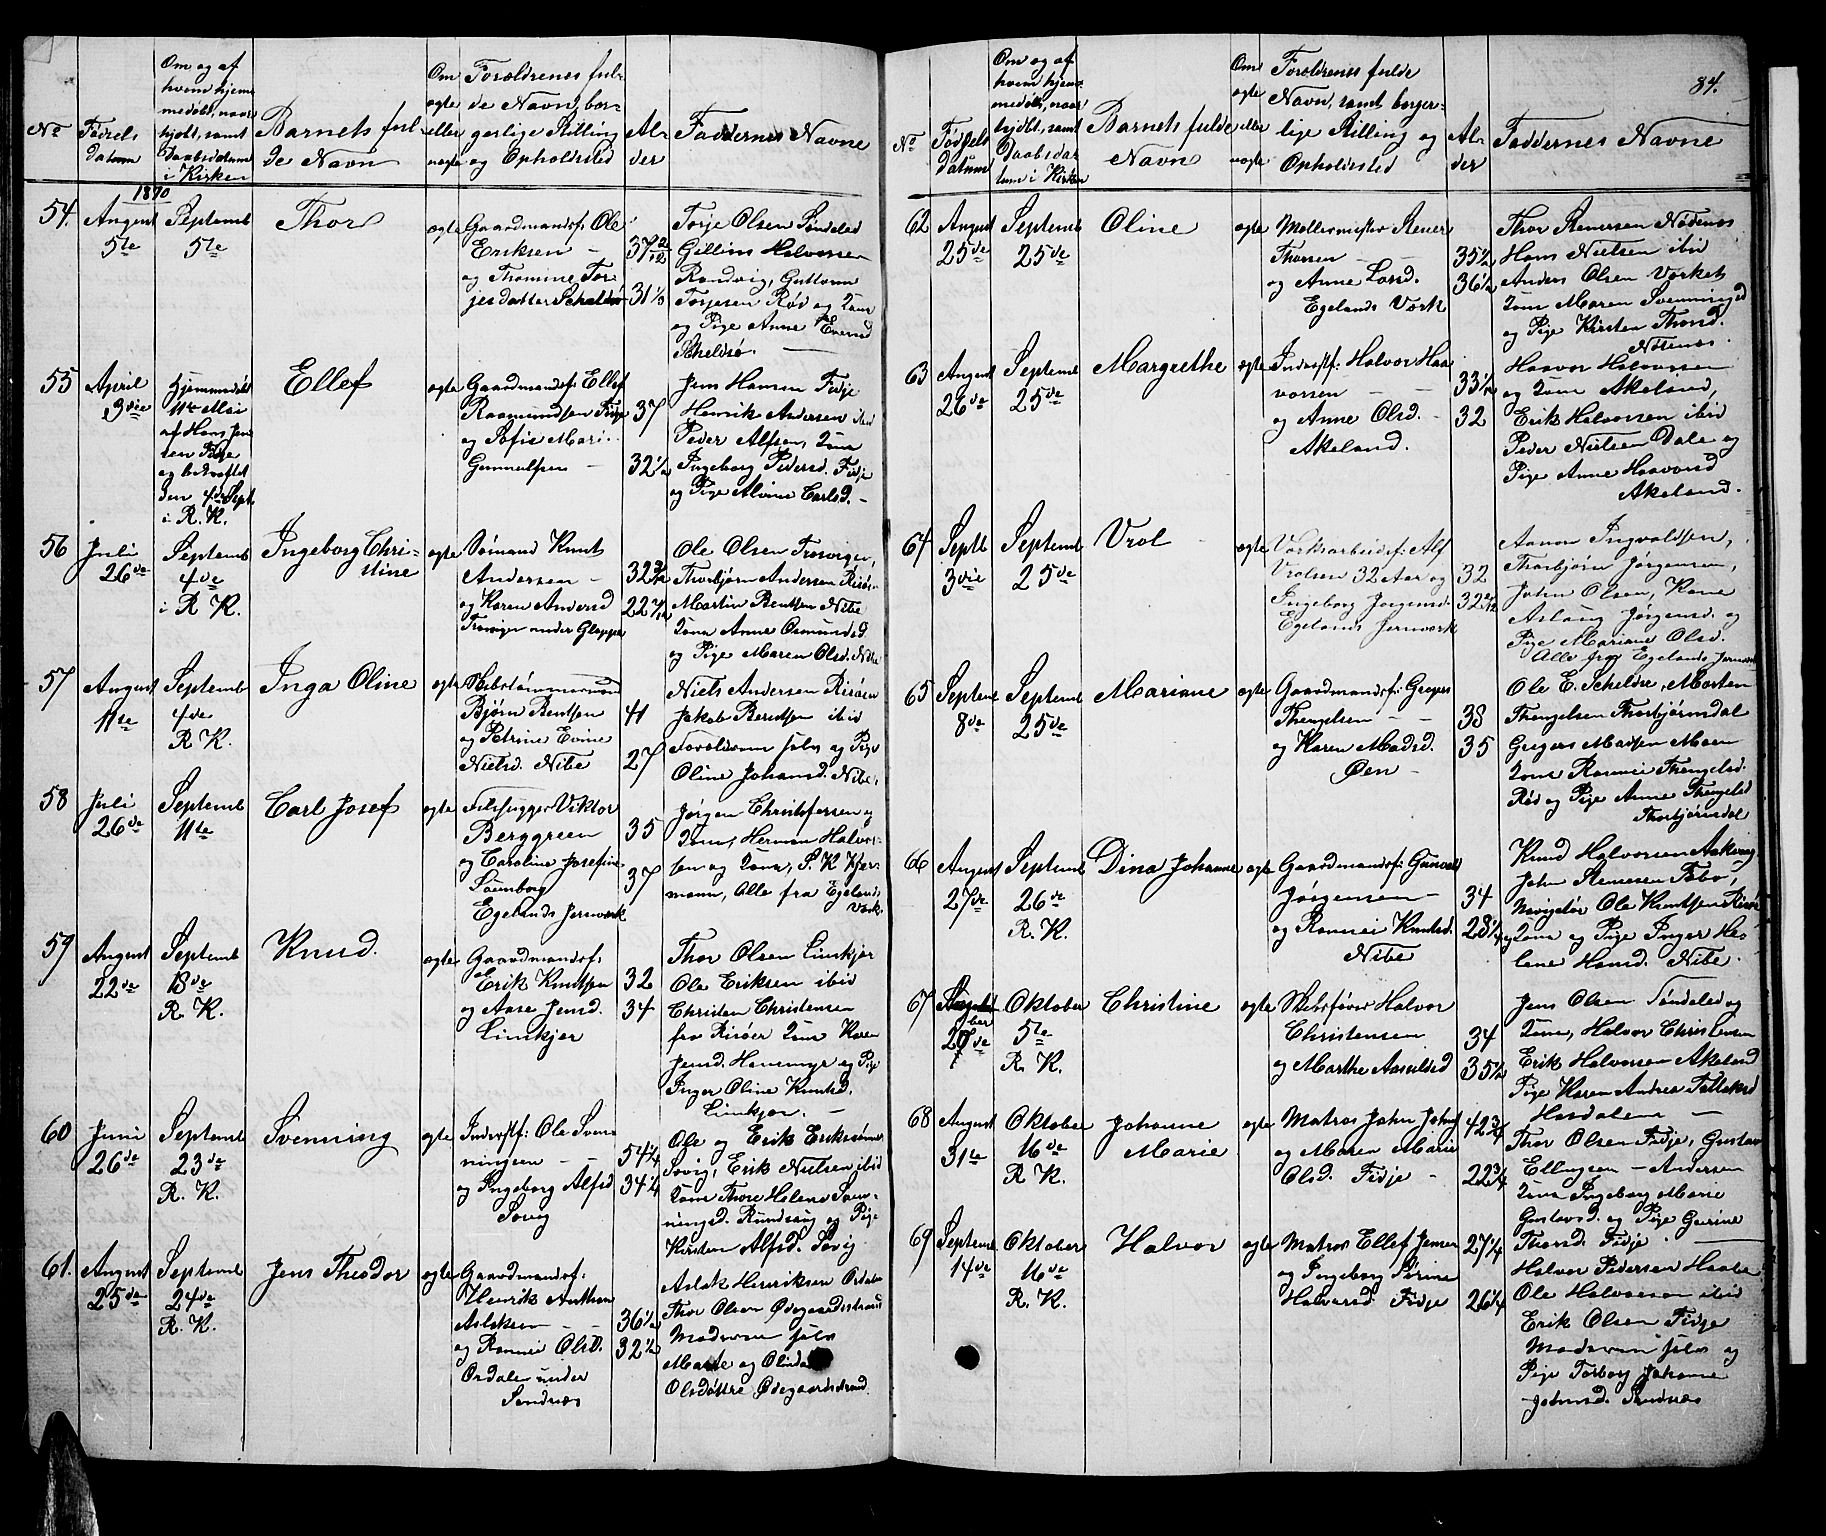 84.
No
Fødsels
datum
Om og af
hvem hjem-
medøbt, naar
hjdbt, samt
Daabsdatum
i Kirken
Barnets ful-
de Navn
Om
ægte
eller
uægte
Forældrenes ful-
de Navn, bor-
gerlige Stilling
og Opholdssted
Al-
der
Faddernes Navne
1870
54.
August
5te
Septemb
5te
Thor
ægte
Gaardmandsf: Ole
Eriksen
og Tromine Tor-
jesdatter Scheldsø
37 2/12
31 1/3
Torje Olsen Søndeled
Halvorsen
Randvig, Guttorm
Torjesen Rød og Kone
og Pige Anne Eversd
Scheldsø.
55
April
3die
Hjemmedøbt
11te Mai
af Hans Jen
sen Fidje
og bekræftet
den 4de Sept.
i R. K.
Ellef
ægte
Gaardmandsf: Ellef
Rasmundsen Fidje
og Sofie Mari
Gunnulfsen
37
32 1/2
Jens Hansen Fidje
Henrik Andersen ibid
Peder Alfsen, Kone
Ingeborg Pedersd. Fidje
og Pige Alvine Carlsd.
56
Juli
26de
Septemb
4de
i R. K.
Ingeborg Chri-
stine
ægte
Sømand Knut
Andersen
og Karen Andersd
under
32 3/4
Ole Olsen
Thorbjørn Andersen Risør
Martin Bentsen Nibe
Kone Anne Osmundsd.
og Pige Maren Olsd. Nibe
57
August
11te
Septemb
4de
R. K.
Inga Oline
ægte
Skibstømmermand
Bjørn Bentsen
og Petrine Evine
Nielsd. Nibe
41
27
Niels Andersen Risøen
Jakob Berntsen ibid
Forældrene selv og Pige
Oline Johansd. Nibe.
58
Juli
26de
Septemb
11te
Carl Josef
ægte
Filehugger Viktor
Berggreen
og Caroline Josefine
Egelands Jernverk
35
37
Jørgen Christofersen og
Kone, Herman Halvor-
sen og Kone, S. K. Kjær-
mann, Alle fra Egelands
Værk.
59
August
22de
Septemb
18de
R. K.
Knud.
ægte
Gaardmandsf:
Erik Knutsen
og Aase Jensd.
Limkjer
32
34
Thor Olsen Limkjer
Ole Eriksen ibid
Christen Christensen
fra Risøer Kone Karen
Jensd. Hanemyr og Pige
Inger Oline Knutsd.
Limkjer.
60
Juni
26de
Septemb
23de
R. K.
Svenning
ægte
Inderstf: Ole Sven-
ningsen
og Ingeborg Alfsd
Sivig
54 1/4
34 1/4
Ole og Erik Erikssønner
Sivig, Erik Nielsen ibid
Kone Thore Helene Sven-
ningsd. Rundsaug og Pige
Kirsten Alfsd. Sivig
61.
August
25de
Septemb
24de
R. K.
Jens Theodor
ægte
Gaardmandsf:
Henrik Anthon
Aslaksen
og Ronnei Olsd.
Ordalen under
Sandnæs
36 1/2
32 1/2
Aslak Henriksen Ordalen
Thor Olsen Ødegaardsstrand
Moderen selv
Marte og Olinda
Olsdøttre Ødegaardsstrand.
No
Fødsels
datum
Om og af
hvem hjem-
medøbt, naar
hjdbt, samt
Daabsda-
tum i Kirken
Barnets fulde
Navn
Om
ægte
eller
uægte
Forældrenes fulde
Navn, samt borger-
lige Stilling og
Opholdssted
Al-
der
Faddernes Navne
62
August
25de
Septemb
25de
Oline
ægte
Møllermester Stener
Thorsen
og Anne Larsd.
Egelands Værk
35 1/2
36 1/2
Thor Stenersen Nødenæs
Hans Nielsen ibid
Anders Olsen Værket
Kone Maren Svenningsd
og Pige Kirsten Thorsd.
Nødenæs.
63
August
26de
Septemb
25de
Margrethe
ægte
Inderstf: Halvor Haa-
vorsen
og Anne Olsd.
Akeland.
32
Haavor Halvorsen
og Kone Akeland,
Erik Halvorsen ibid
Peder Nielsen Dale og
Pige Anne Haavorsd
Akeland.
64
Septb
3die
Septemb
25de
Vrol
ægte
Værksarbeidsf: Alf
Vrolsen 32 Aar og
Ingeborg Jørgensd.
Egelands Jernværk
32
Aanon Ingvaldsen,
Thorbjørn Jørgensen,
John Olsen, Kone
Aslaug Jørgensd. og
Pige Mariane Olsd.
Alle fra Egelands Jernværk
65
Septemb
8de
Septemb
25de
Mariane
ægte
Gaardmandsf: Gregers
Thengelsen
og Karen Madsd.
Øen
38
35
Ole E. Scheldsø, Morten
Thengelsen Thorbjørnsdal
Gregers Madsen Moen
Kone Ronnei Thengelsd.
Rød og Pige Anne Thengelsd
Thorbjørnsdal
66
August
27de
Septemb
26de
R. K.
Dina Johanne
ægte
Gaardmandsf: Gunvald
Jørgensen
og Ronnei Knutsd.
Nibe
34
28 1/4
Knud Halvorsen Aakvaag
John Stenersen Fabo,
Navigatør Ole Knutsen Risør
og Kone og Pige Inger He-
lene Hansd. Nibe.
67
ber
20de
Oktober
5te
R. K.
Christine
ægte
Skibsfører Halvor
Christensen
og Marthe Aasulsd
34
35 1/2
Jens Olsen Søndeled og
Kone, Halvor Christensen
Erik Halvorsen Akeland
Pige Karen Andrea Tallaksd
Hasdalen
68
August
31te
Oktober
16de
R. K.
Johanne
Marie
ægte
Matros John John
og Maren Marie
Olsd. Fidje
42 3/4
22 3/4
Thor Olsen Fidje, Gustav
Ellingsen - Andersen
Kone Ingeborg Marie
Gustavsd. og Pige Gurine
Thorsd. Fidje.
69
Septemb
14de
Oktober
16de
R. K.
Halvor
ægte
Matros Ellef Jensen
og Ingeborg Sørine
Halvorsd. Fidje
27 1/4
26 1/4
Halvor Pedersen Haabe
Ole Halvorsen ibid
Erik Olsen Fidje
Moderen selv og
Pige Torborg Johanne
Johnsd. Sandnæs